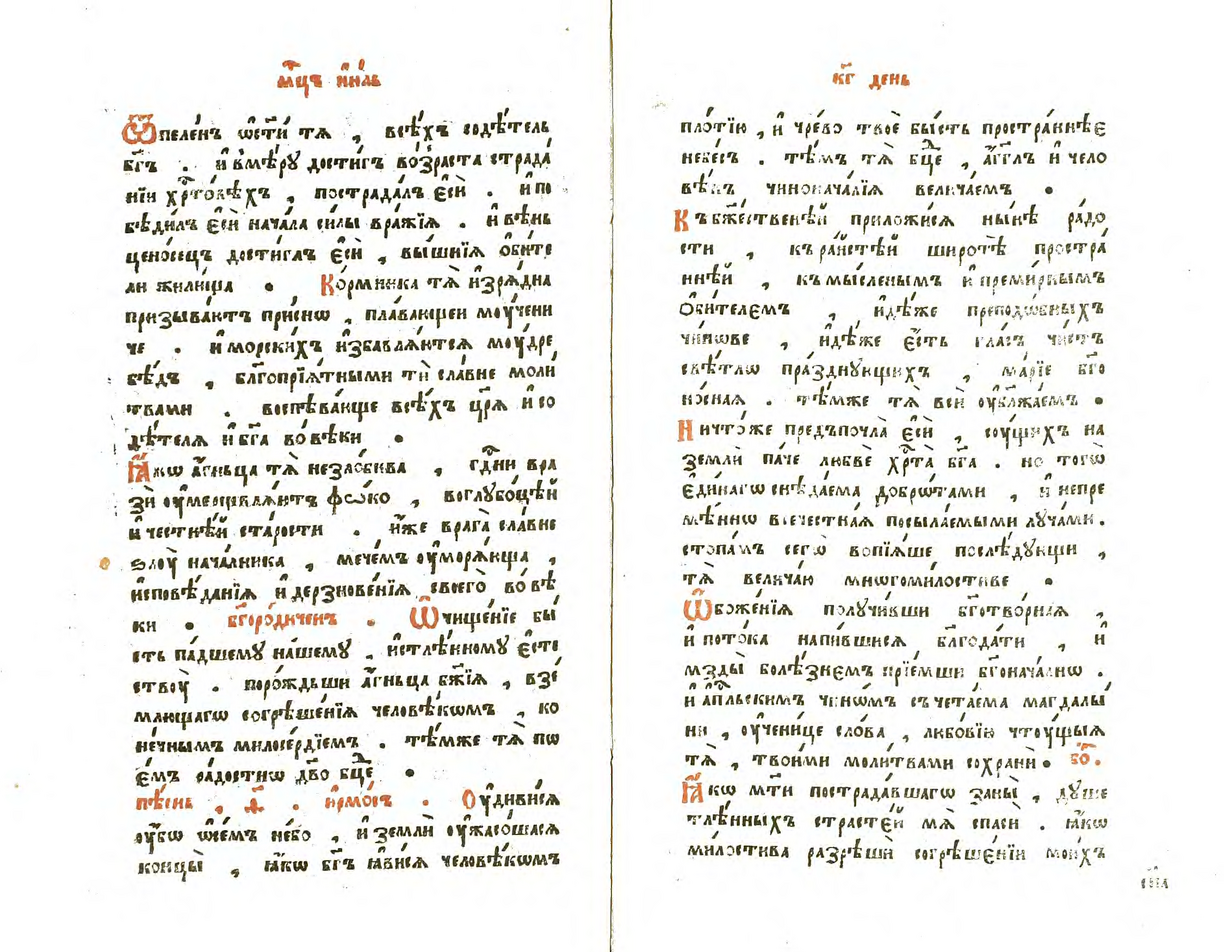 мц҃ъ і҆ю́ль
Ѿпеле́нъ ѡ҆ст҃и́ тѧ , всѣ́хъ содѣ́тель
бг҃ъ . и҆ вмѣ́рꙋ дости́гъ во́зраста страда́
нїи хрⷭ҇то́вѣхъ , пострада́лъ є҆сѝ . и҆ по
бѣди́лъ є҆сѝ нача́ла си́лы вра́жїѧ . и҆ вѣ́нь
цено́сецъ дости́глъ є҆сѝ , вы́шнїѧ ѻ҆би́те
ли жили́ща . Ко́рмника тѧ̀ и҆зрѧ́дна
призыва́ютъ при́снѡ , пла́вающеи моу́чени
че . и҆ морски́хъ и҆збавлѧ́ютсѧ моу́дре
бѣ́дъ , бл҃гопрїѧ́тными тѝ сла́вне моли
твами . воспѣва́юще всѣ́хъ цр҃ѧ̀ и҆ со
дѣ́телѧ и҆ бг҃а во́ вѣки .
Ꙗ҆́кѡ а҆́гньца тѧ̀ незло́бива , гдⷭ҇ни вра
зѝ оу҆мерщвлѧ́ютъ фѡ́ко , воглубо́цѣй
и҆ честнѣ́й ста́рости . и҆́же врага̀ сла́вне
ѕлоу̀ нача́лника , мече́мъ оу҆морѧ́юща ,
и҆сповѣ́данїѧ и҆ дерзнове́нїѧ своего̀ во́ вѣ
ки . бг҃оро́диченъ . Ѡ҆чище́нїе бы́
сть па́дшемꙋ на́шемꙋ , и҆стлѣ́нномꙋ є҆сте
ствоу̀ . поро́ждьши а҆́гньца бж҃їѧ , взе́
млющагѡ согрѣше́нїѧ человѣ́кѡмъ , ко
не́чнымъ милосе́рдїемъ . тѣ́мже тѧ̀ пѡ
є҆́мъ ра́достнѡ дв҃о бцⷣе .
пѣ́снь , ѳ҃ . і҆рмо́съ . Оу҆диви́сѧ
оу҆́бѡ ѡ҆ се́мъ не́бо , и҆ землѝ оу҆жасо́шасѧ
концы̀ , ꙗ҆́кѡ бг҃ъ ꙗ҆ви́сѧ человѣ́кѡмъ
к҃г де́нь
пло́тїю , и҆ чре́во твоѐ бы́сть простра́ннѣе
небе́съ . тѣ́мъ тѧ̀ бцⷣе , а҆́гг҃лъ и҆ чело
вѣ́къ чинонача́лїѧ велича́емъ .
Къ бж҃ественѣ́й приложи́сѧ ны́нѣ ра́до
сти , къ ра́йстѣй широтѣ̀ простра́
ннѣй , къ мы́сленымъ и҆ преми́рнымъ
ѻ҆би́телемъ , и҆дѣ́же преподо́бныхъ
чи́нове , и҆дѣ́же є҆́сть гла́съ чи́стъ
свѣ́тлѡ пра́зднующихъ , марі́е бг҃о
но́сная . тѣ́мже тѧ̀ всѝ оу҆блажа́емъ .
Ничто́же предъпочла̀ є҆сѝ , соу́щихъ на
землѝ па́че любвѐ хрⷭ҇та̀ бг҃а . но тогѡ̀
є҆ди́нагѡ снѣда́ема добро́тами , и҆ непре
мѣ́ннѡ всечестна́ѧ посыла́емыми луча́ми .
стопа́мъ сегѡ̀ вопїѧ́ше послѣ́дꙋющи ,
тѧ̀ велича́ю мно́гомилостиве .
Ѡ҆боже́нїѧ получи́вши бг҃отво́рнаѧ ,
и҆ пото́ка напи́вшисѧ бл҃года́ти , и҆
мзды̀ болѣ́знемъ прїе́мши бг҃онача́лнѡ .
и҆ а҆пⷭ҇льскимъ чи́нѡмъ съчета́ема магдалы́
ни , оу҆чени́це сло́ва , любо́вїю чтоу́щыѧ
тѧ̀ , твои́ми моли́твами сохранѝ . бо҃ .
Ꙗ҆́кѡ мт҃и пострада́вшагѡ за ны̀ , дꙋ́ше
тлѣ́нныхъ страсте́й мѧ̀ спасѝ . ꙗ҆́кѡ
ми́лостива разрѣшѝ согрѣше́нїи мои́хъ